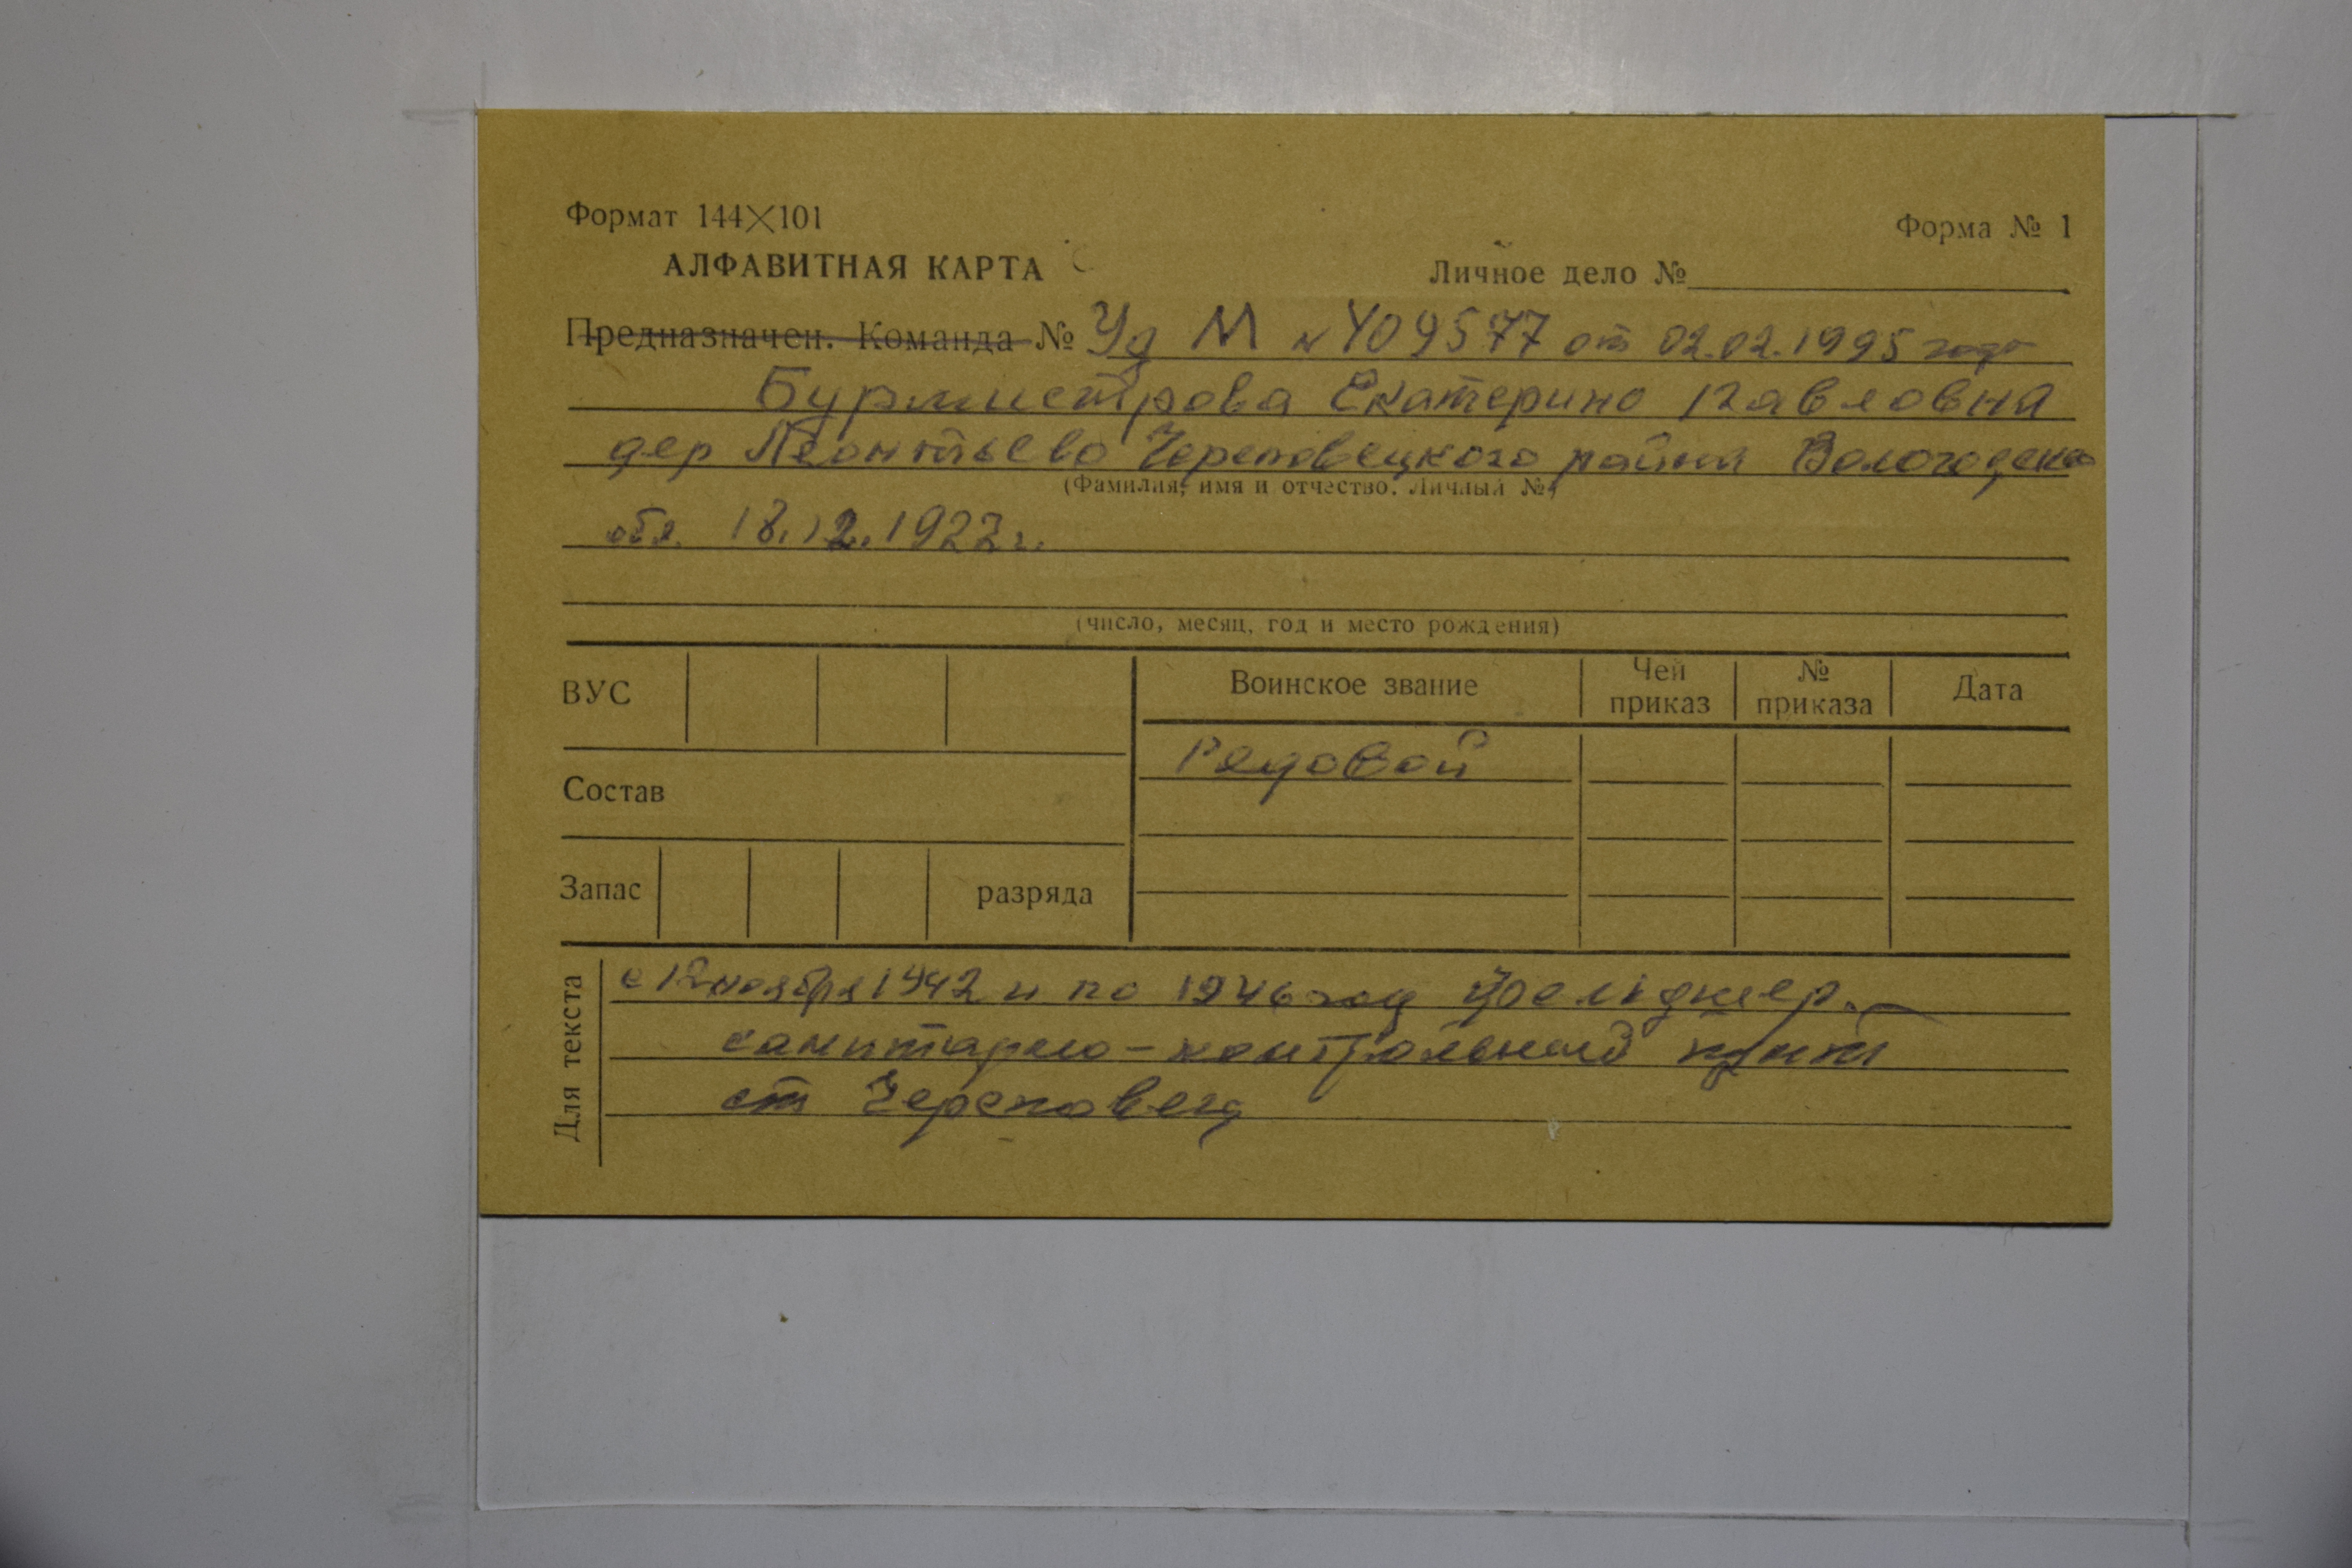 Формат 144×101
Форма № 1
АЛФАВИТНАЯ КАРТА
Личное дело №
Предназначен. Команда № Уд М № 409577 от 02.02.1995 года
Бурмистрова Екатерина Павловна
дер Леонтьево Череповецкого района Вологодской
(Фамилия, имя и отчество. Личный №)
обл. 18.12.1922г.
(число, месяц, год и место рождения)
ВУС
Воинское звание
Чей приказ
№ приказа
Дата
Рядовой
Состав
Запас
разряда
Для текста
с 12 ноября 1942 и по 1946 год фельдшер
санитарно-контрольный пункт
ст Череповец